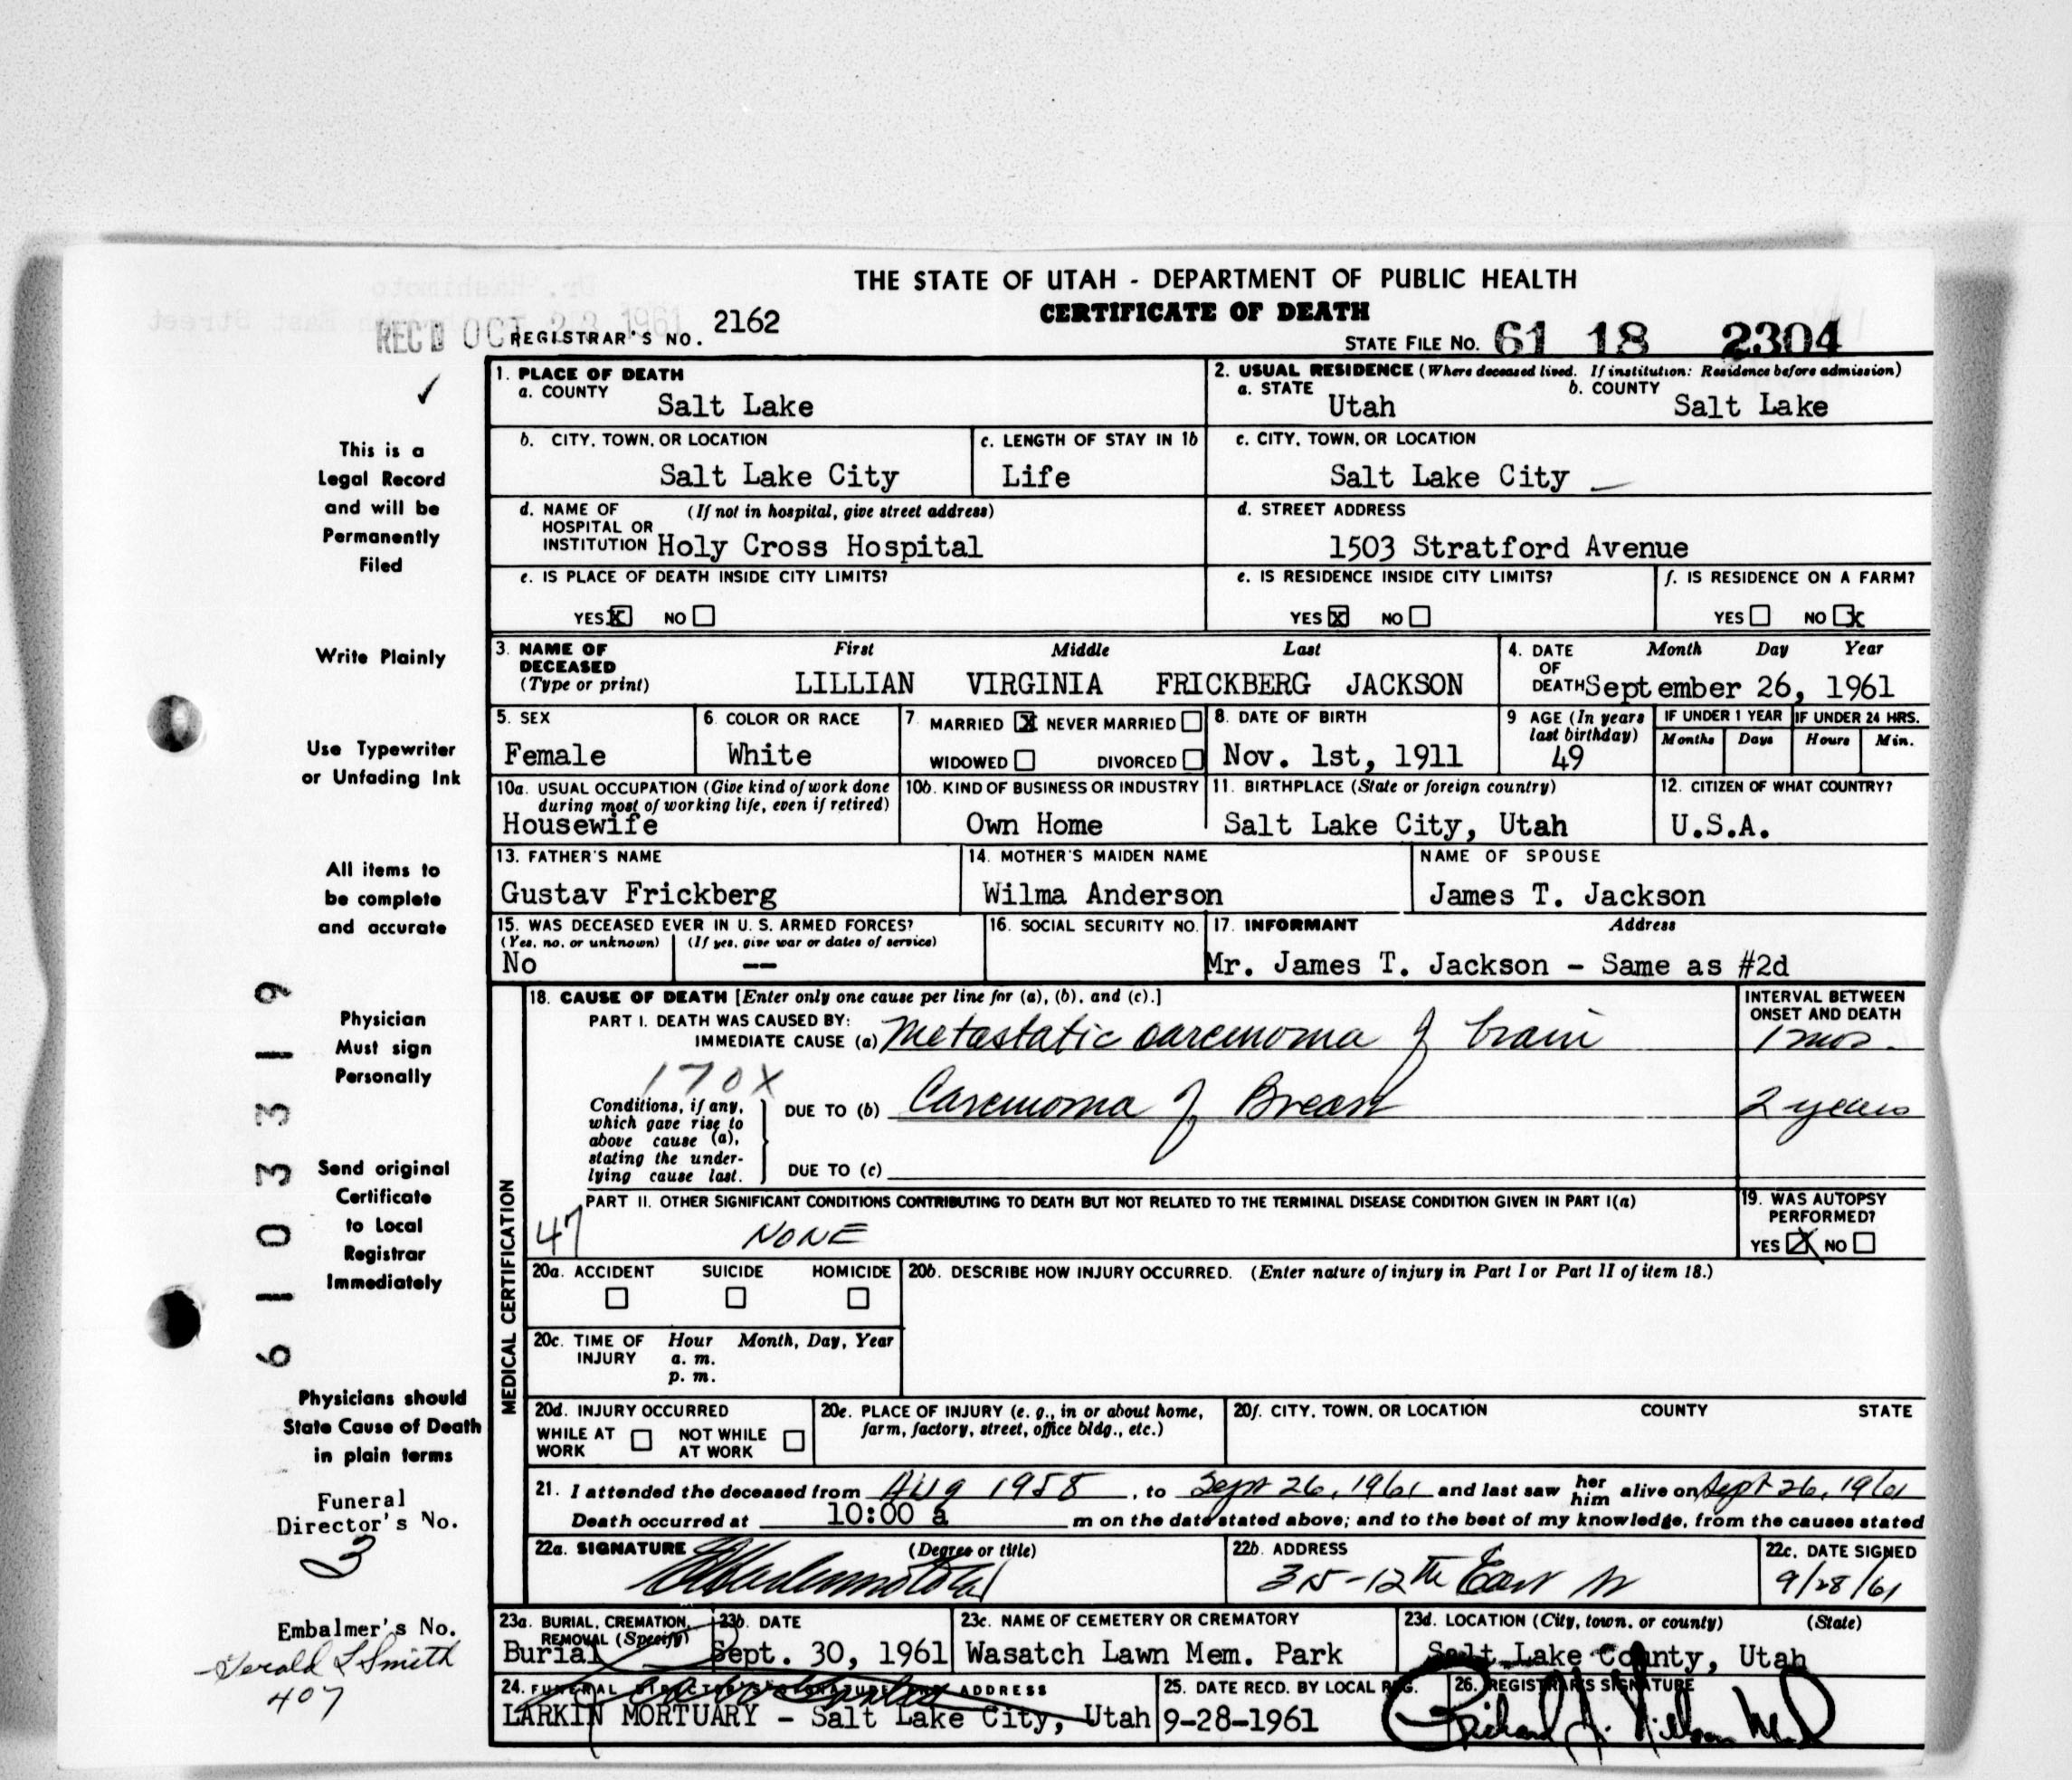 THE STATE OF UTAH - DEPARTMENT OF PUBLIC HEALTH
CERTIFICATE OF DEATH
REC'D OCT 23 1961
REGISTRAR'S NO. 2162
STATE FILE NO. 61 18 2304
1. PLACE OF DEATH
a. COUNTY Salt Lake
2. USUAL RESIDENCE (Where deceased lived. If institution: Residence before admission)
a. STATE Utah b. COUNTY Salt Lake
b. CITY, TOWN, OR LOCATION Salt Lake City
c. LENGTH OF STAY IN 1b Life
c. CITY, TOWN, OR LOCATION Salt Lake City
d. NAME OF HOSPITAL OR INSTITUTION (If not in hospital, give street address) Holy Cross Hospital
d. STREET ADDRESS 1503 Stratford Avenue
e. IS PLACE OF DEATH INSIDE CITY LIMITS?
YES X NO
e. IS RESIDENCE INSIDE CITY LIMITS?
YES X NO
f. IS RESIDENCE ON A FARM?
YES NO X
3. NAME OF DECEASED (Type or print) First Middle Last
LILLIAN VIRGINIA FRICKBERG JACKSON
4. DATE OF DEATH Month Day Year
September 26, 1961
5. SEX Female
6. COLOR OR RACE White
7. MARRIED X NEVER MARRIED
WIDOWED DIVORCED
8. DATE OF BIRTH Nov. 1st, 1911
9 AGE (In years last birthday) 49
IF UNDER 1 YEAR Months Days
IF UNDER 24 HRS. Hours Min.
10a. USUAL OCCUPATION (Give kind of work done during most of working life, even if retired) Housewife
10b. KIND OF BUSINESS OR INDUSTRY Own Home
11. BIRTHPLACE (State or foreign country) Salt Lake City, Utah
12. CITIZEN OF WHAT COUNTRY? U.S.A.
13. FATHER'S NAME Gustav Frickberg
14. MOTHER'S MAIDEN NAME Wilma Anderson
NAME OF SPOUSE James T. Jackson
15. WAS DECEASED EVER IN U. S. ARMED FORCES?
(Yes, no, or unknown) No (If yes, give war or dates of service) --
16. SOCIAL SECURITY NO.
17. INFORMANT Address
Mr. James T. Jackson - Same as #2d
MEDICAL CERTIFICATION
18. CAUSE OF DEATH [Enter only one cause per line for (a), (b), and (c).]
INTERVAL BETWEEN ONSET AND DEATH
PART I. DEATH WAS CAUSED BY:
IMMEDIATE CAUSE (a) Metastatic carcinoma of brain 1 mos.
170X
Conditions, if any, which gave rise to above cause (a), stating the underlying cause last.
DUE TO (b) Carcinoma of Breast 2 years
DUE TO (c)
PART II. OTHER SIGNIFICANT CONDITIONS CONTRIBUTING TO DEATH BUT NOT RELATED TO THE TERMINAL DISEASE CONDITION GIVEN IN PART I(a)
47 NONE
19. WAS AUTOPSY PERFORMED?
YES X NO
20a. ACCIDENT SUICIDE HOMICIDE
20b. DESCRIBE HOW INJURY OCCURRED. (Enter nature of injury in Part I or Part II of item 18.)
20c. TIME OF INJURY Hour Month, Day, Year
a. m.
p. m.
20d. INJURY OCCURRED
WHILE AT WORK NOT WHILE AT WORK
20e. PLACE OF INJURY (e. g., in or about home, farm, factory, street, office bldg., etc.)
20f. CITY, TOWN, OR LOCATION COUNTY STATE
21. I attended the deceased from Aug 1958, to Sept 26, 1961 and last saw her him alive on Sept 26, 1961
Death occurred at 10:00 a m on the date stated above; and to the best of my knowledge, from the causes stated
22a. SIGNATURE (Degree or title)
22b. ADDRESS 315-12th East
22c. DATE SIGNED 9/28/61
23a. BURIAL, CREMATION, REMOVAL (Specify) Burial
23b. DATE Sept. 30, 1961
23c. NAME OF CEMETERY OR CREMATORY Wasatch Lawn Mem. Park
23d. LOCATION (City, town, or county) (State) Salt Lake County, Utah
24. FUNERAL DIRECTOR'S SIGNATURE ADDRESS
LARKIN MORTUARY - Salt Lake City, Utah
25. DATE RECD. BY LOCAL REG. 9-28-1961
26. REGISTRAR'S SIGNATURE
This is a
Legal Record
and will be
Permanently
Filed
Write Plainly
Use Typewriter
or Unfading Ink
All items to
be complete
and accurate
Physician
Must sign
Personally
Send original
Certificate
to Local
Registrar
Immediately
Physicians should
State Cause of Death
in plain terms
Funeral
Director's No.
3
Embalmer's No.
Gerald L Smith
407
61033 19